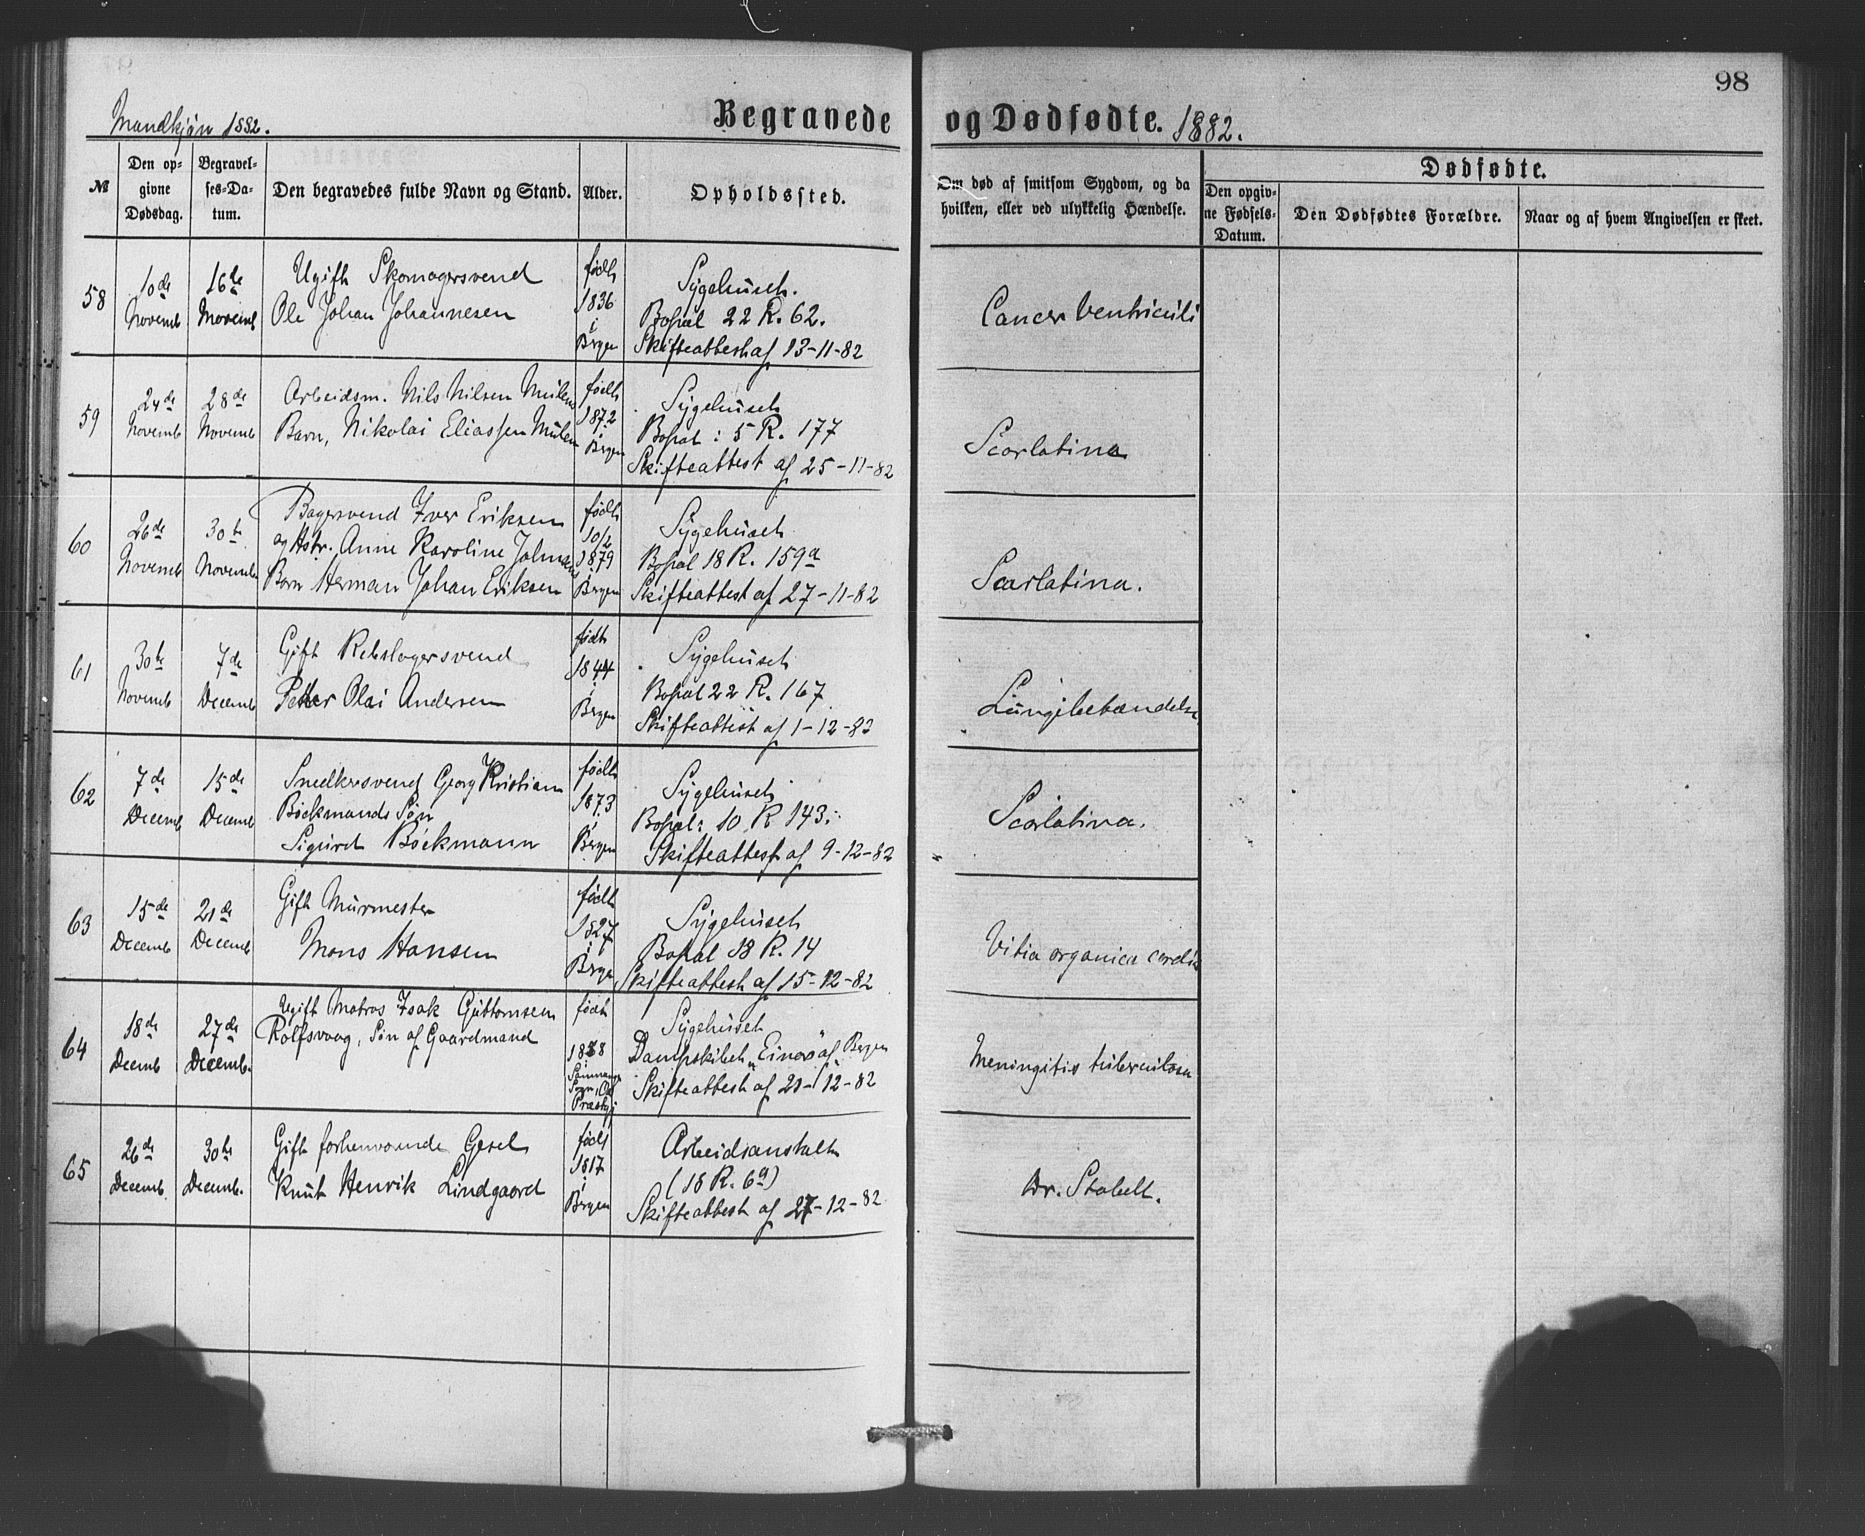 98
Mandkjøn 1882.
Begravede og Dødfødte. 1882.
№
Den op-
givne
Dødsdag.
Begravel-
ses-Da-
tum.
Den begravedes fulde Navn og Stand.
Alder.
Opholdssted.
Om død af smitsom Sygdom, og da
hvilken, eller ved ulykkelig Hændelse.
Dødfødte.
Den opgiv-
ne Fødsels-
Datum.
Den Dødfødtes Forældre.
Naar og af hvem Angivelsen er skeet.
58
10de
Novemb
16de
Novemb
Ugift Skomagersvend
Ole Johan Johannesen
født
1836
i
Bergen
Sygehuset.
Bopæl 22 R. 62.
Skifteattest af 13-11-82
Cancer ventriculi
59
24de
Novemb
28de
Novemb
Arbeidsm. Nils Nilsen Mulens
Barn, Nikolai Eliassen Mulen
født
1872
i
Bergen
Sygehuset
Bopæl: 5 R. 177
Skifteattest af 25-11-82
Scarlatina
60
26de
Novemb
30te
Novemb
Bagersvend Iver Eriksen
og Hstr. Anne Karoline
Barn Herman Johan Eriksen
født
10/2
1879
i
Bergen
Sygehuset
Bopæl 18 R. 159a
Skifteattest af 27-11-82
Scarlatina.
61
30te
Novemb
7de
Decemb
Gift Rebslagersvend
Peter Olai Andersen
født
1844
i
Bergen
Sygehuset
Bopæl 22 R. 167
Skifteattest af 1-12-82
Lungebetændelse
62
7de
Decemb
15de
Decemb
Snedkersvend Georg Kristian
Böckmands Søn
Sigurd Böckmann
født
1873
i
Bergen
Sygehuset
Bopæl: 10 R 143.
Skifteattest af 9-12-82
Scarlatina.
63
15de
Decemb
21de
Decemb
Gift Murmester
Mons Hansen
født
1827
i
Bergen
Sygehuset
Bopæl 18 R. 14
Skifteattest af 15-12-82
Vitia organica cordis
64
18de
Decemb
27de
Decemb.
Ugift Matros Isak Guttormsen
Rolfsvaag, Søn af Gaardmand
født
18 8
i
Sogn,
Præstgj
Sygehuset
Dampskibet „Einar" af Bergen
Skifteattest af 21-12-82
Meningitis tuberculosa
65
26de
Decemb
30te
Decemb.
Gift forhenværende Gesel
Knut Henrik Lindgaard
født
1817
i
Bergen
Arbeidsanstalten
(18 R. 6a)
Skifteattest af 27-12-82
Dr. Stabell.